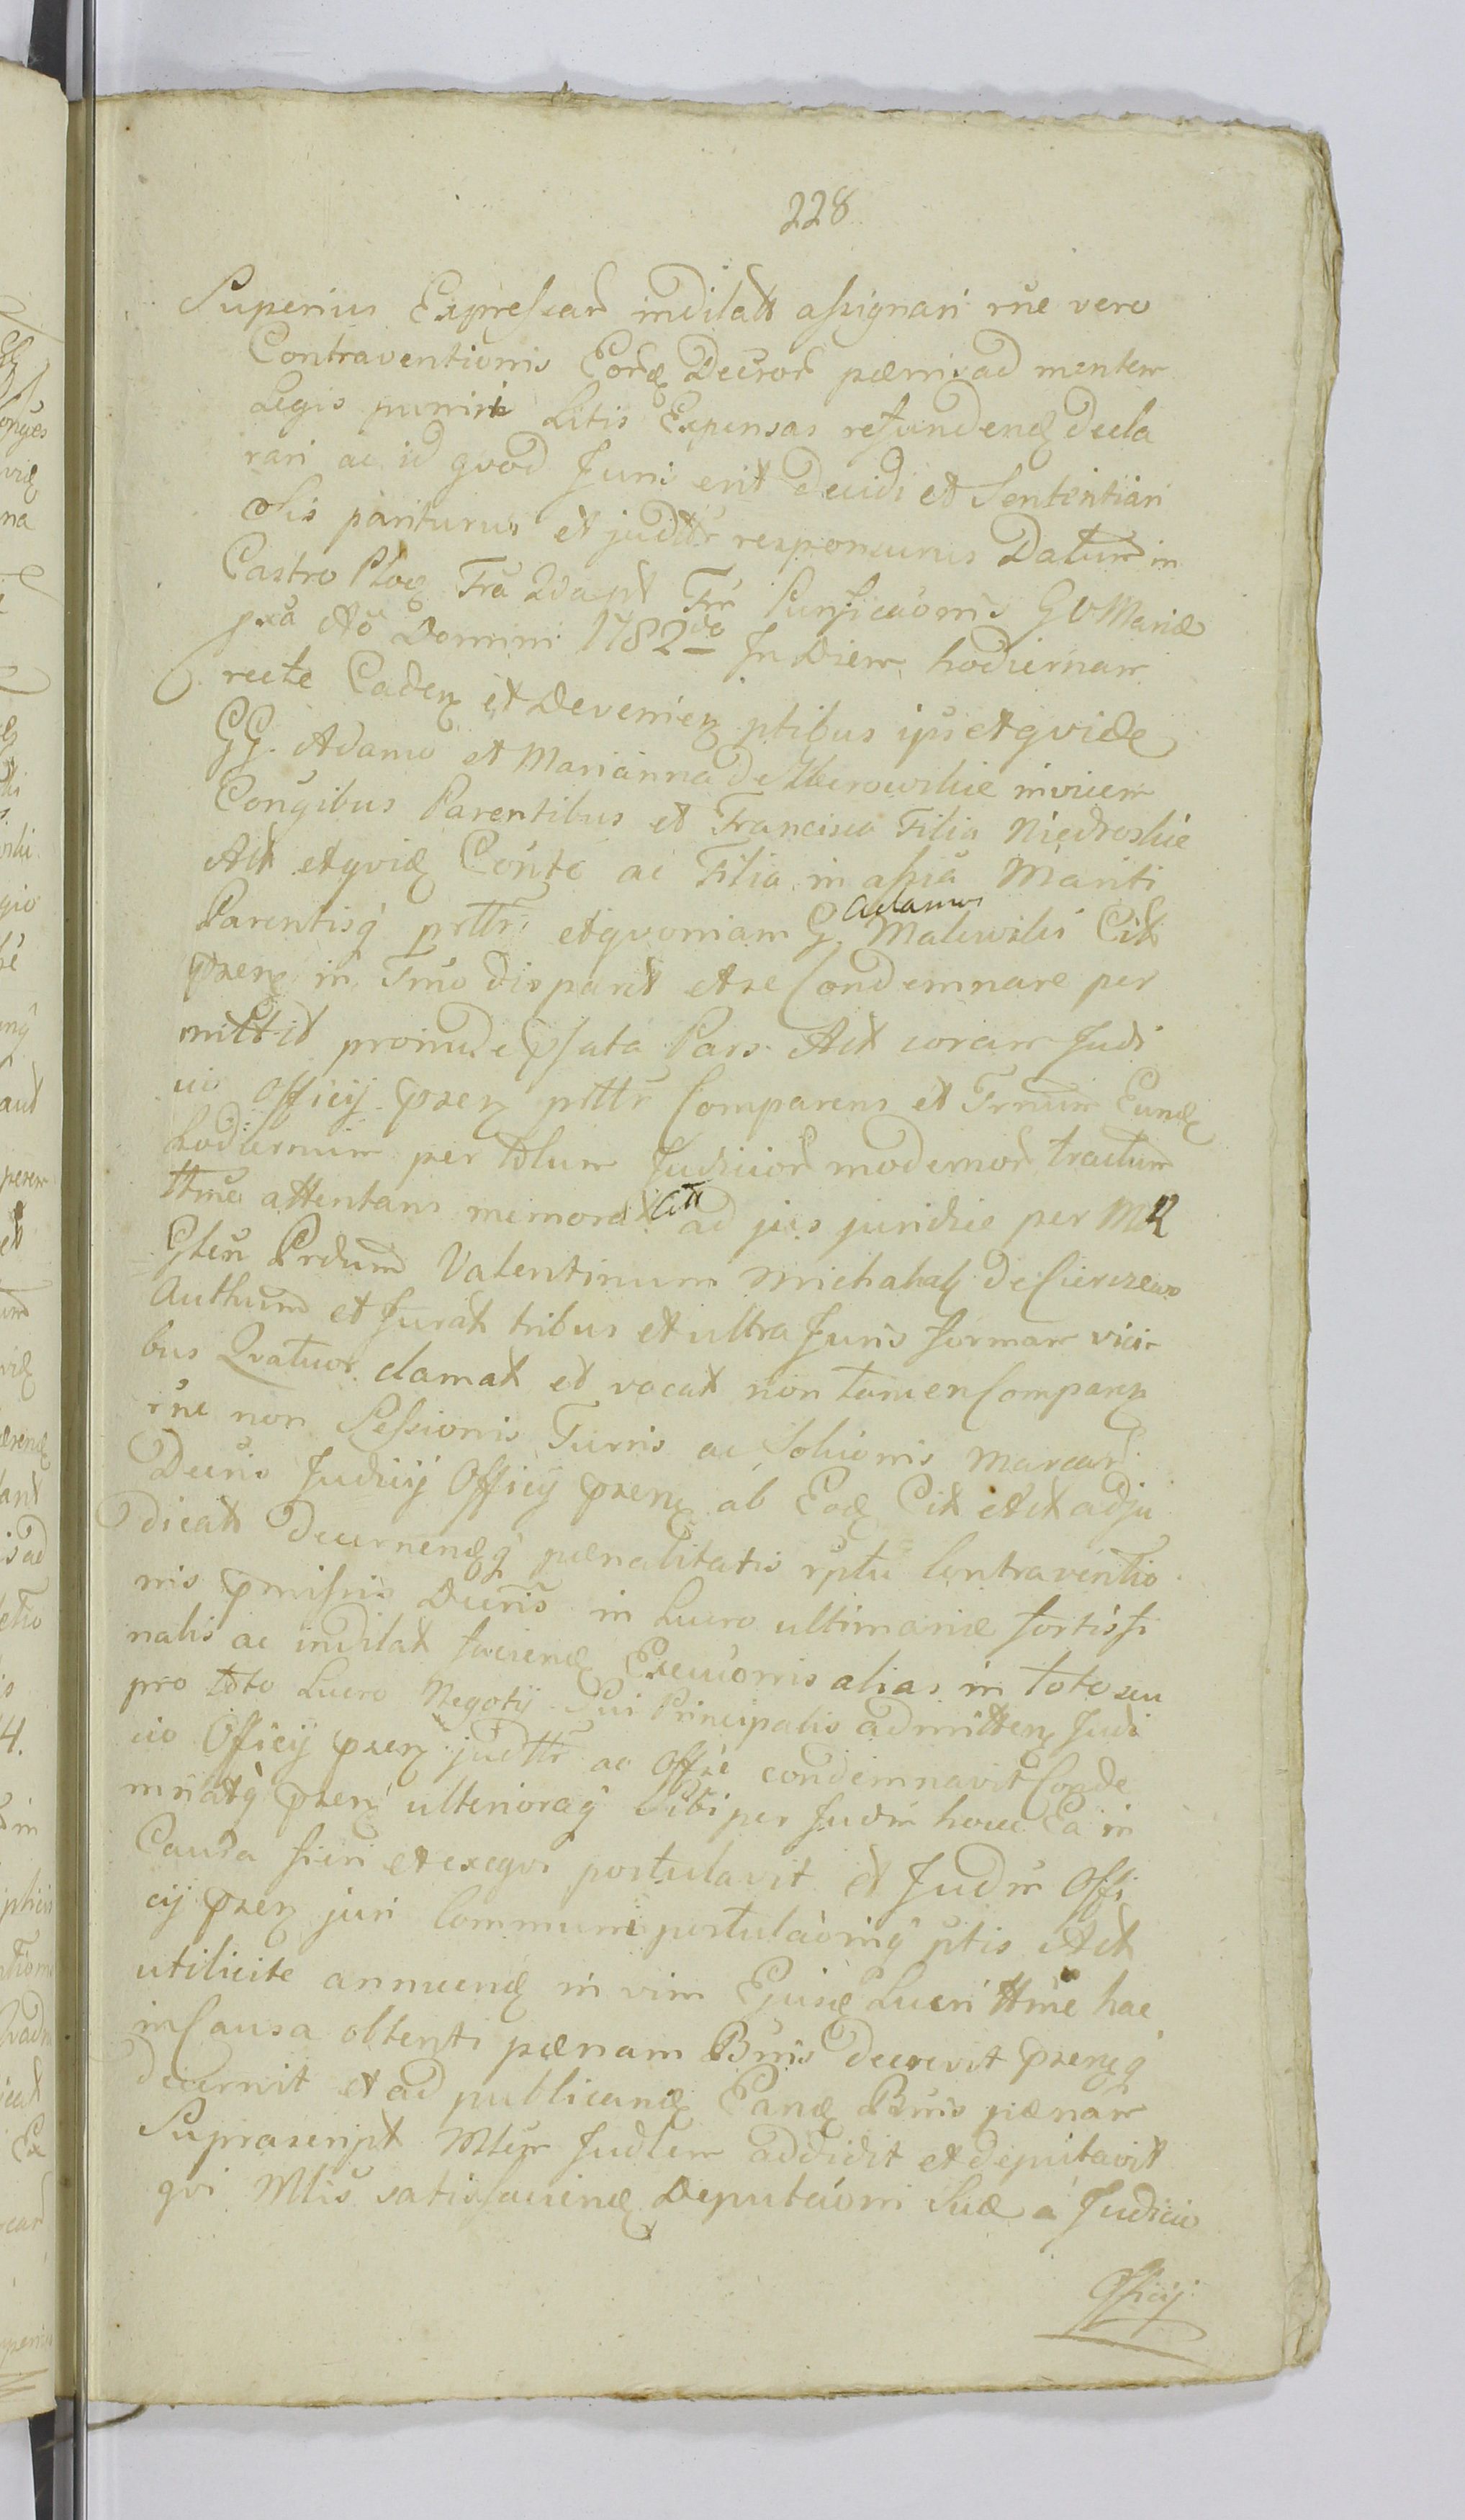 228
Superius Expressar indilatt assignari rne vero
Contraventionis Eord Decror pænis ad mentem
Legis puniri Litis Expensas refundend decla
rari ac id qvod Juri erit decidi et Sententiari
chis pariturus et judttr responsurus Datum in
Castro Ploc Fra 2da pt Frr Purificaonis G V Mariæ
pxa Ao Domini 1782do In Diem hodiernam
recte Caden et Devenien ptibus ipis etqvidem
GG. Adamo et Marianna de Zberowskie invicem
Congibus Parentibus et Francisca Filia Niedroskie
Act etqvid Conte ac Filia in assia Mariti
Parentisq prttr etqvoniam G. Adamus Malewski Cit
pxen in Tmo disparet et se Condemnare per
mittit proinde psata Pars Act coram Judi
cio Officij pxen prttr Comparens et Trnum Eund
hodiernum per totum Judicior modernor tractum
ttme attentans memorat Citt ad jus juridice per M
Glem Prdum Valentinum Michalak de Cierszewo
Authum et Jurat tribus et ultra Juris formam vici
bus Qvatuor clamat et vocat non tamen Comparen
rne non Sessionis Turris ac Soluonis Marcar
Decris Judicij Officij pxen ab Eod Cit et it adju
dicatt decernendq pænalitatis rptu Contraventio
nis pmissis Decris in Lucro ultimariæ fortissi
nalis ac indilat faciend Execuonis alias in toto seu
pro toto Lucro Negotij Sui Principalis admitten Judi
cio Officij pxen judttr ac Offse condemnavit Conde
mnatq pxen ulterioraq Sibi per Judm hocce Ea in
Causa fieri et exeqvi postulavit et Judm Offi
cij pxen juri Communi postulaoniq ptis Act
utilicite annuend in vim Ejusd Lucri ttme hac
in Causa obtenti pænam Bnis decrevit pxenq
decernit et ad publicand Eand Bnis pænam
Suprascript Mlem Judlem addidit et deputavit
qvi Mlis satisfaciend Deputaoni Suæ a Judicio
Officij